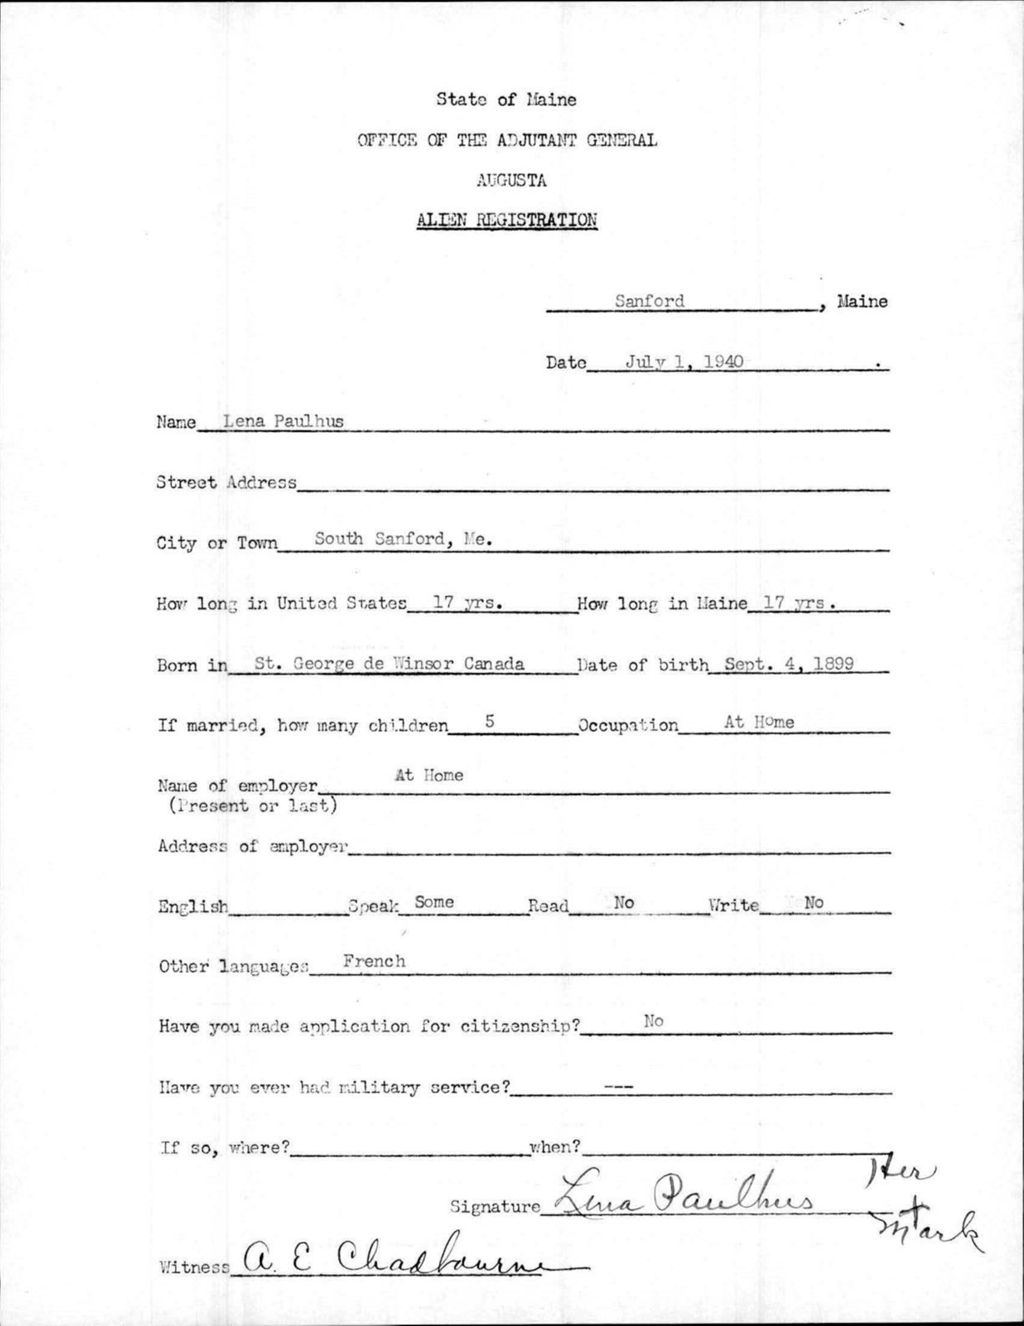 State of Maine
OFFICE OF THE ADJUTANT GENERAL
AUGUSTA
ALIEN REGISTRATION
Sanford, Maine
Date July 1, 1940.
Name Lena Paulhus
Street Address
City or Town South Sanford, Me.
How long in United States 17 yrs. How long in Maine 17 yrs.
Born in St. George de Winsor Canada Date of birth Sept. 4, 1899
If married, how many children 5 Occupation At Home
Name of employer At Home
(Present or last)
Address of employer
English Speak Some Read No Write No
Other languages French
Have you made application for citizenship? No
Have you ever had military service? ---
If so, where? when?
Signature Lena Paulhus Her
+
Mark
Witness A. E Chadbourne